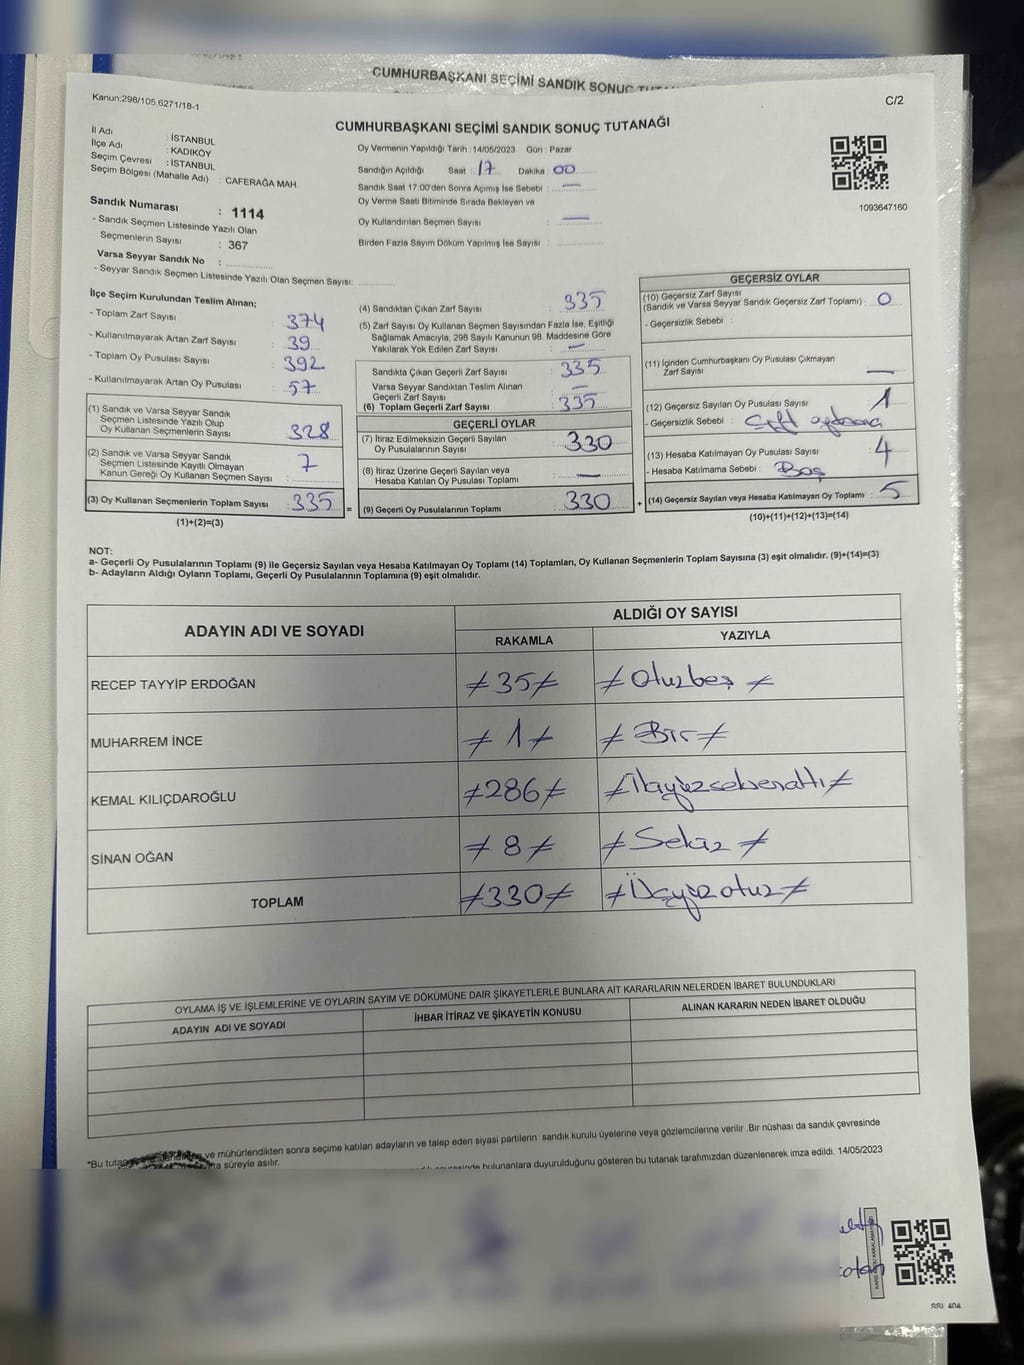 CUMHURBAŞKANI SEÇİMİ SANDIK SONUÇ
Kanun:298/105,6271/18-1
C/2
CUMHURBAŞKANI SEÇİMİ SANDIK SONUÇ TUTANAĞI
İl Adı : İSTANBUL
İlçe Adı : KADIKÖY
Seçim Çevresi : İSTANBUL
Seçim Bölgesi (Mahalle Adı) : CAFERAĞA MAH.
Oy Vermenin Yapıldığı Tarih : 14/05/2023 Gün : Pazar
Sandığın Açıldığı Saat : 17 Dakika : 00
Sandık Saat 17:00'den Sonra Açımış İse Sebebi : —
Oy Verme Saati Bitiminde Sırada Bekleyen ve
Oy Kullandırılan Seçmen Sayısı : —
Birden Fazla Sayım Döküm Yapılmış İse Sayısı :
1093647160
Sandık Numarası : 1114
- Sandık Seçmen Listesinde Yazılı Olan
Seçmenlerin Sayısı : 367
Varsa Seyyar Sandık No :
- Seyyar Sandık Seçmen Listesinde Yazılı Olan Seçmen Sayısı:
İlçe Seçim Kurulundan Teslim Alınan;
- Toplam Zarf Sayısı : 374
- Kullanılmayarak Artan Zarf Sayısı : 39
- Toplam Oy Pusulası Sayısı : 392
- Kullanılmayarak Artan Oy Pusulası : 57
(1) Sandık ve Varsa Seyyar Sandık
Seçmen Listesinde Yazılı Olup
Oy Kullanan Seçmenlerin Sayısı : 328
(2) Sandık ve Varsa Seyyar Sandık
Seçmen Listesinde Kayıtlı Olmayan
Kanun Gereği Oy Kullanan Seçmen Sayısı : 7
(3) Oy Kullanan Seçmenlerin Toplam Sayısı : 335
(1)+(2)=(3)
(4) Sandıktan Çıkan Zarf Sayısı : 335
(5) Zarf Sayısı Oy Kullanan Seçmen Sayısından Fazla İse, Eşitliği
Sağlamak Amacıyla, 298 Sayılı Kanunun 98. Maddesine Göre
Yakılarak Yok Edilen Zarf Sayısı : —
Sandıkta Çıkan Geçerli Zarf Sayısı : 335
Varsa Seyyar Sandıktan Teslim Alınan
Geçerli Zarf Sayısı : —
(6) Toplam Geçerli Zarf Sayısı : 335
GEÇERLİ OYLAR
(7) İtiraz Edilmeksizin Geçerli Sayılan
Oy Pusulalarının Sayısı : 330
(8) İtiraz Üzerine Geçerli Sayılan veya
Hesaba Katılan Oy Pusulası Toplamı : —
= (9) Geçerli Oy Pusulalarının Toplamı : 330
GEÇERSİZ OYLAR
(10) Geçersiz Zarf Sayısı
(Sandık ve Varsa Seyyar Sandık Geçersiz Zarf Toplamı) : 0
- Geçersizlik Sebebi :
(11) İçinden Cumhurbaşkanı Oy Pusulası Çıkmayan
Zarf Sayısı : —
(12) Geçersiz Sayılan Oy Pusulası Sayısı : 1
- Geçersizlik Sebebi : Çift
(13) Hesaba Katılmayan Oy Pusulası Sayısı : 4
- Hesaba Katılmama Sebebi : Boş
+ (14) Geçersiz Sayılan veya Hesaba Katılmayan Oy Toplamı : 5
(10)+(11)+(12)+(13)=(14)
NOT:
a- Geçerli Oy Pusulalarının Toplamı (9) ile Geçersiz Sayılan veya Hesaba Katılmayan Oy Toplamı (14) Toplamları, Oy Kullanan Seçmenlerin Toplam Sayısına (3) eşit olmalıdır. (9)+(14)=(3)
b- Adayların Aldığı Oyların Toplamı, Geçerli Oy Pusulalarının Toplamına (9) eşit olmalıdır.
ADAYIN ADI VE SOYADI
ALDIĞI OY SAYISI
RAKAMLA YAZIYLA
RECEP TAYYİP ERDOĞAN ≠35≠ ≠Otuzbeş≠
MUHARREM İNCE ≠1≠ ≠Bir≠
KEMAL KILIÇDAROĞLU ≠286≠ ≠İkiyüzseksenaltı≠
SİNAN OĞAN ≠8≠ ≠Sekiz≠
TOPLAM ≠330≠ ≠Üçyüzotuz≠
OYLAMA İŞ VE İŞLEMLERİNE VE OYLARIN SAYIM VE DÖKÜMÜNE DAİR ŞİKAYETLERLE BUNLARA AİT KARARLARIN NELERDEN İBARET BULUNDUKLARI
ADAYIN ADI VE SOYADI
İHBAR İTİRAZ VE ŞİKAYETİN KONUSU
ALINAN KARARIN NEDEN İBARET OLDUĞU
*Bu ve mühürlendikten sonra seçime katılan adayların ve talep eden siyasi partilerin sandık kurulu üyelerine veya gözlemcilerine verilir .Bir nüshası da sandık çevresinde
süreyle asılır.
bulunanlara duyurulduğunu gösteren bu tutanak tarafımızdan düzenlenerek imza edildi. 14/05/2023